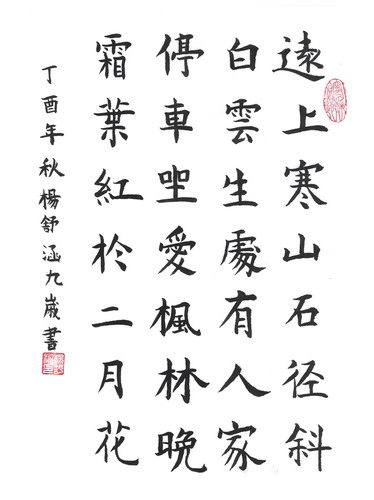 遠上寒山石径斜
白雲生處有人家
停車坐愛楓林晚
霜葉紅於二月花
丁酉年秋楊舒涵九歲書